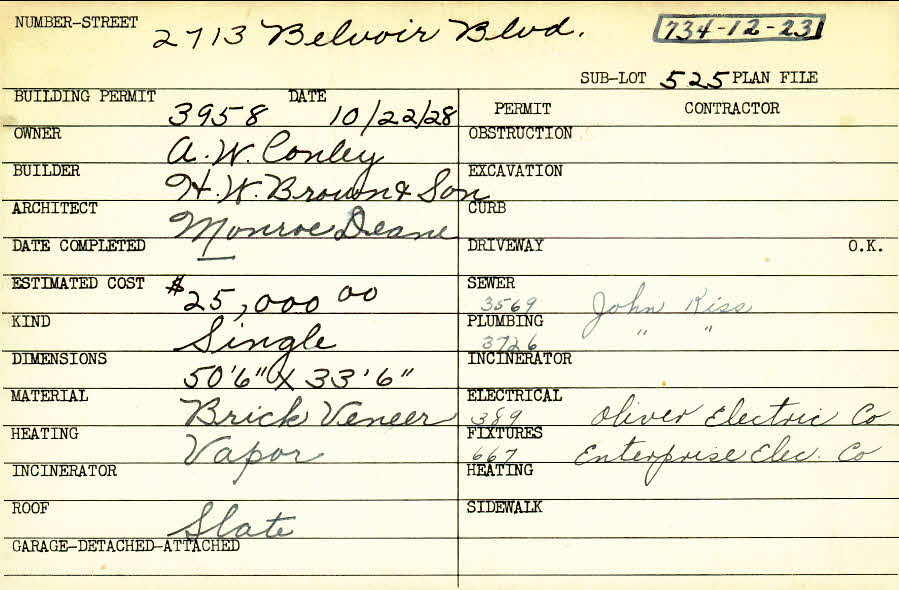 NUMBER-STREET 2713 Belvoir Blvd. 734-12-23
SUB-LOT 525 PLAN FILE
BUILDING PERMIT 3958 DATE 10/22/28
OWNER A. W. Conley
BUILDER H. W. Brown & Son
ARCHITECT Monroe Deane
DATE COMPLETED —
ESTIMATED COST $25,000 00
KIND Single
DIMENSIONS 50'6" X 33'6"
MATERIAL Brick Veneer
HEATING Vapor
INCINERATOR
ROOF Slate
GARAGE-DETACHED-ATTACHED
PERMIT CONTRACTOR
OBSTRUCTION
EXCAVATION
CURB
DRIVEWAY O.K.
SEWER 3569 John Kiss
PLUMBING 3726 " "
INCINERATOR
ELECTRICAL 389 Oliver Electric Co
FIXTURES 667 Enterprise Elec. Co
HEATING
SIDEWALK